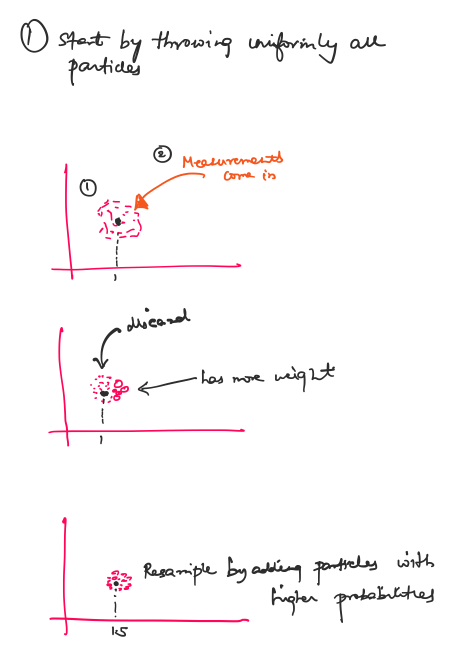 ① Start by throwing uniformly all
particles
② Measurements
come in
①
1
discard
has more weight
1
Resample by adding particles with
higher probabilities
1.5